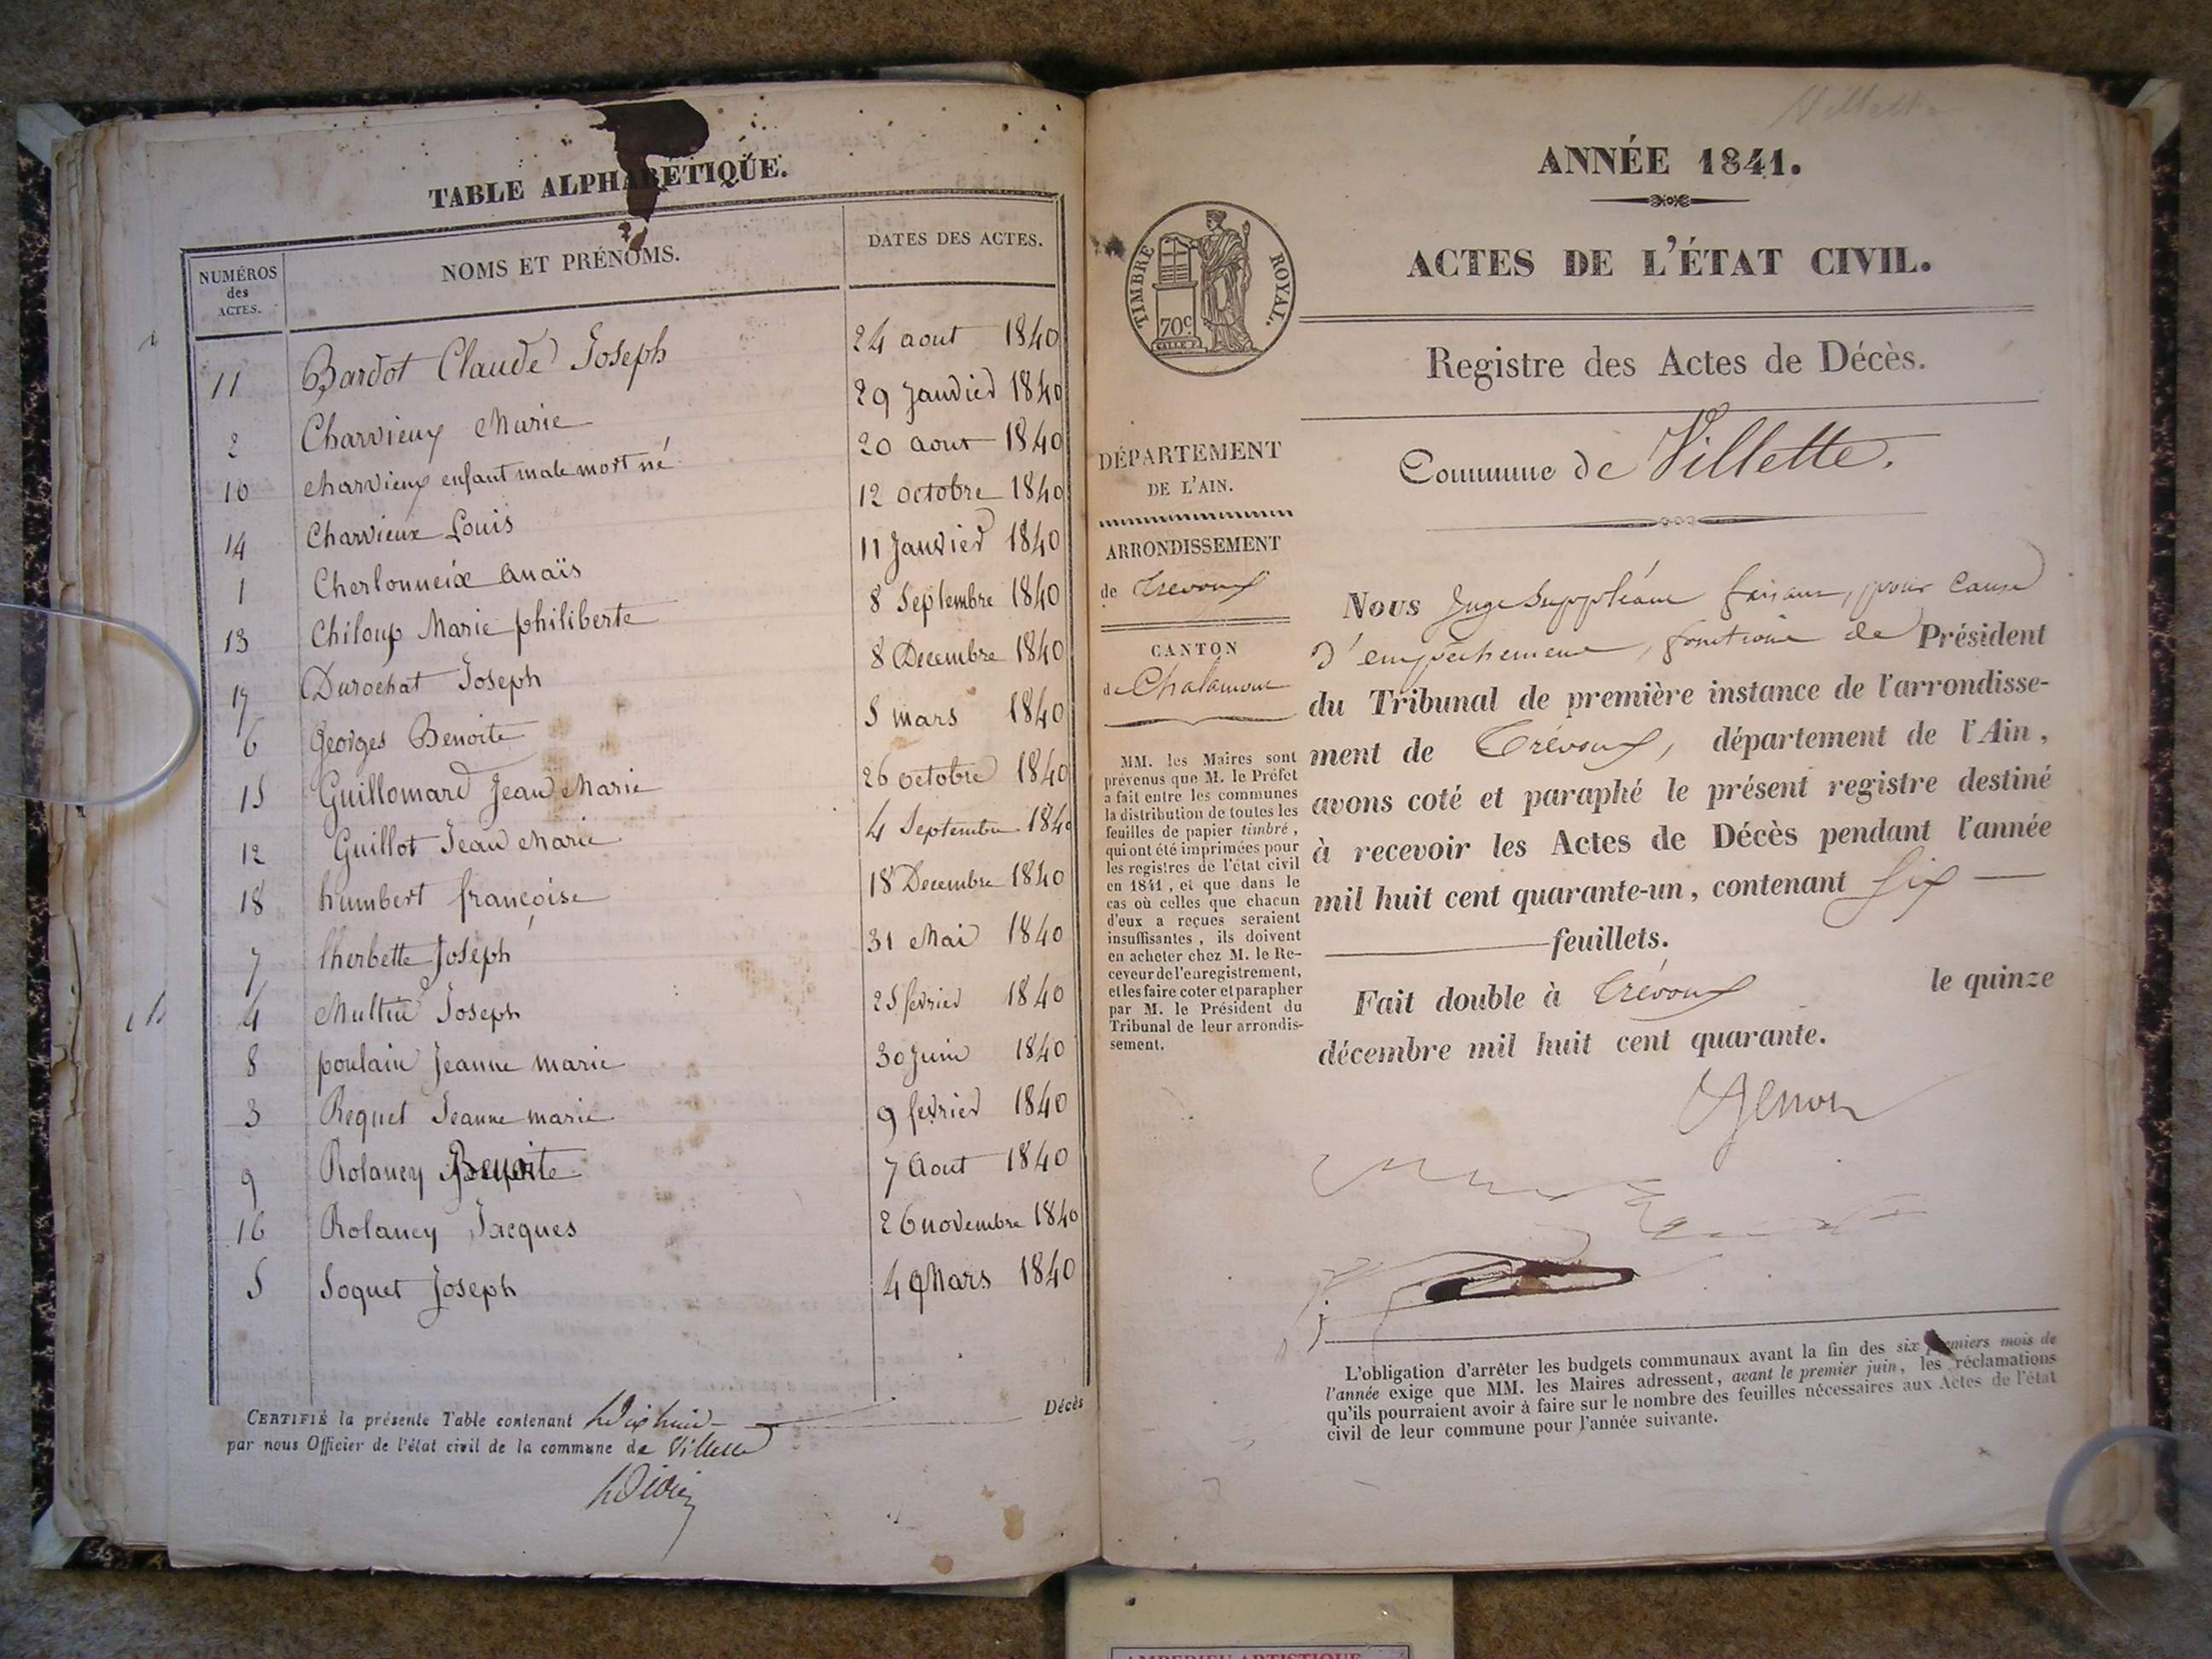 TABLE ALPHABÉTIQUE.
NUMÉROS des ACTES. NOMS ET PRÉNOMS. DATES DES ACTES.
11 Bardot Claude Joseph 24 aout 1840
2 Charvieux Marie 29 Janvier 1840
10 charvieux enfant male mort né 20 aout 1840
14 Charvieux Louis 12 octobre 1840
1 Cherlonneix anaïs 11 Janvier 1840
13 Chiloup Marie philiberte 8 Septembre 1840
17 Durochat Joseph 8 Decembre 1840
6 Georges Benoite 5 mars 1840
15 Guillomard Jean Marie 26 octobre 1840
12 Guillot Jean Marie 4 Septembre 1840
18 humbert françoise 18 Decembre 1840
7 lherbette Joseph 31 Mai 1840
4 Joseph 25 fevrier 1840
8 poulain Jeanne marie 30 Juin 1840
3 Requet Jeanne marie 9 fevrier 1840
9 Rolancy Benoite 7 Aout 1840
16 Rolancy Jacques 26 novembre 1840
5 Soquet Joseph 4 Mars 1840
CERTIFIÉ la présente Table contenant Dix huit Décès
par nous Officier de l'état civil de la commune de Villette
Villette
ANNÉE 1841.
ACTES DE L'ÉTAT CIVIL.
TIMBRE ROYAL.
70c
Registre des Actes de Décès.
Commune de Villette.
DÉPARTEMENT
DE L'AIN.
ARRONDISSEMENT
de Trévoux
CANTON
de Chalamont
MM. les Maires sont
prévenus que M. le Préfet
a fait entre les communes
la distribution de toutes les
feuilles de papier timbré,
qui ont été imprimées pour
les registres de l'état civil
en 1841, et que dans le
cas où celles que chacun
d'eux a reçues seraient
insuffisantes, ils doivent
en acheter chez M. le Re-
ceveur de l'enregistrement,
et les faire coter et parapher
par M. le Président du
Tribunal de leur arrondis-
sement.
Nous Juge Suppléant faisant, pour cause
d'empêchement, fonctions de Président
du Tribunal de première instance de l'arrondisse-
ment de Trévoux, département de l'Ain,
avons coté et paraphé le présent registre destiné
à recevoir les Actes de Décès pendant l'année
mil huit cent quarante-un, contenant six
feuillets.
Fait double à Trévoux le quinze
décembre mil huit cent quarante.
L'obligation d'arrêter les budgets communaux avant la fin des six premiers mois de
l'année exige que MM. les Maires adressent, avant le premier juin, les réclamations
qu'ils pourraient avoir à faire sur le nombre des feuilles nécessaires aux Actes de l'état
civil de leur commune pour l'année suivante.
AMBERIEU ARTISTIQUE